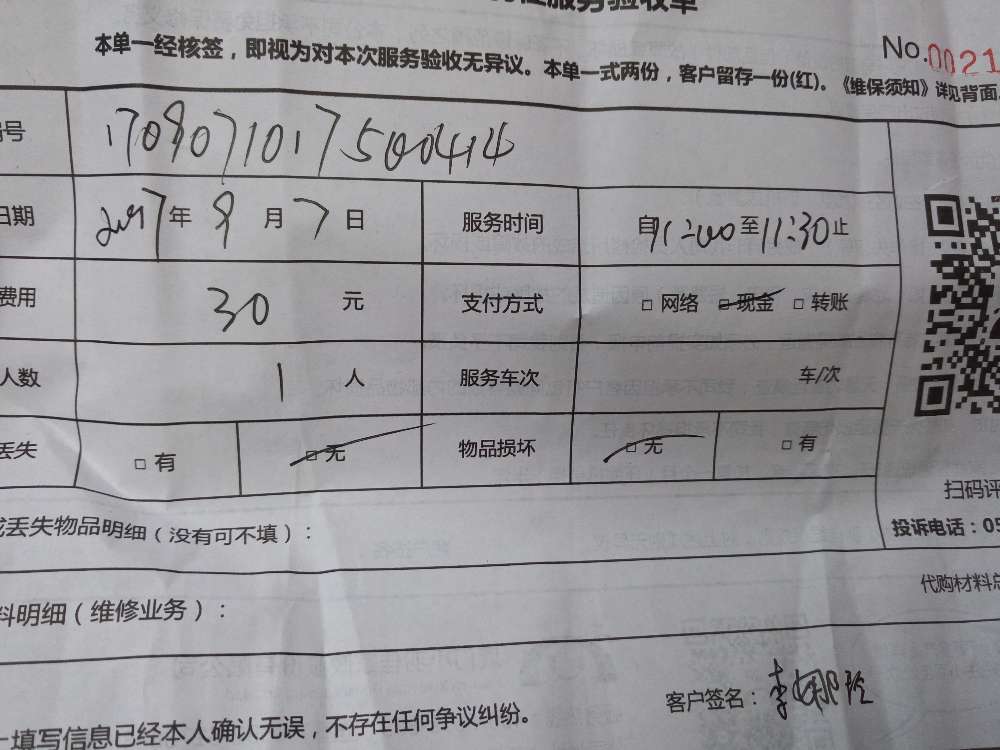 服务验收单
本单一经核签，即视为对本次服务验收无异议。本单一式两份，客户留存一份(红)。《维保须知》详见背面。
No.0021
号 1708071017500414
日期 2017年 8月 7日 服务时间 自11:00至11:30止
费用 30 元 支付方式 □ 网络 □ 现金 □ 转账
人数 1 人 服务车次 车/次
丢失 □ 有 □ 无 物品损坏 □ 无 □ 有
扫码评
丢失物品明细（没有可不填）：
投诉电话：05
代购材料总
料明细（维修业务）：
客户签名：李娜玲
填写信息已经本人确认无误，不存在任何争议纠纷。